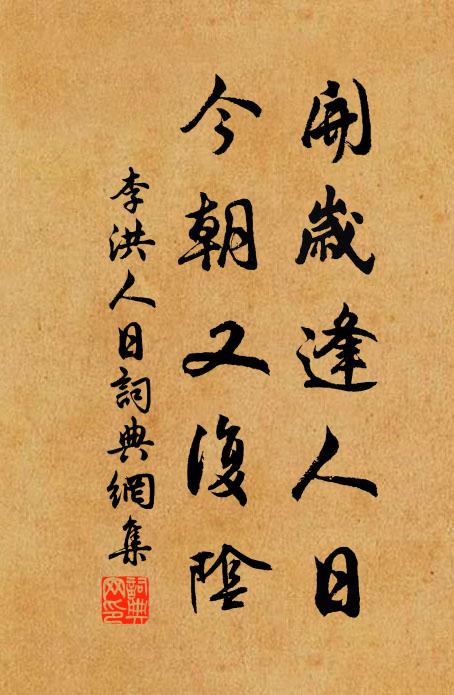 開歲逢人日
今朝又復陰
李洪人日詞典網集
詞典網印